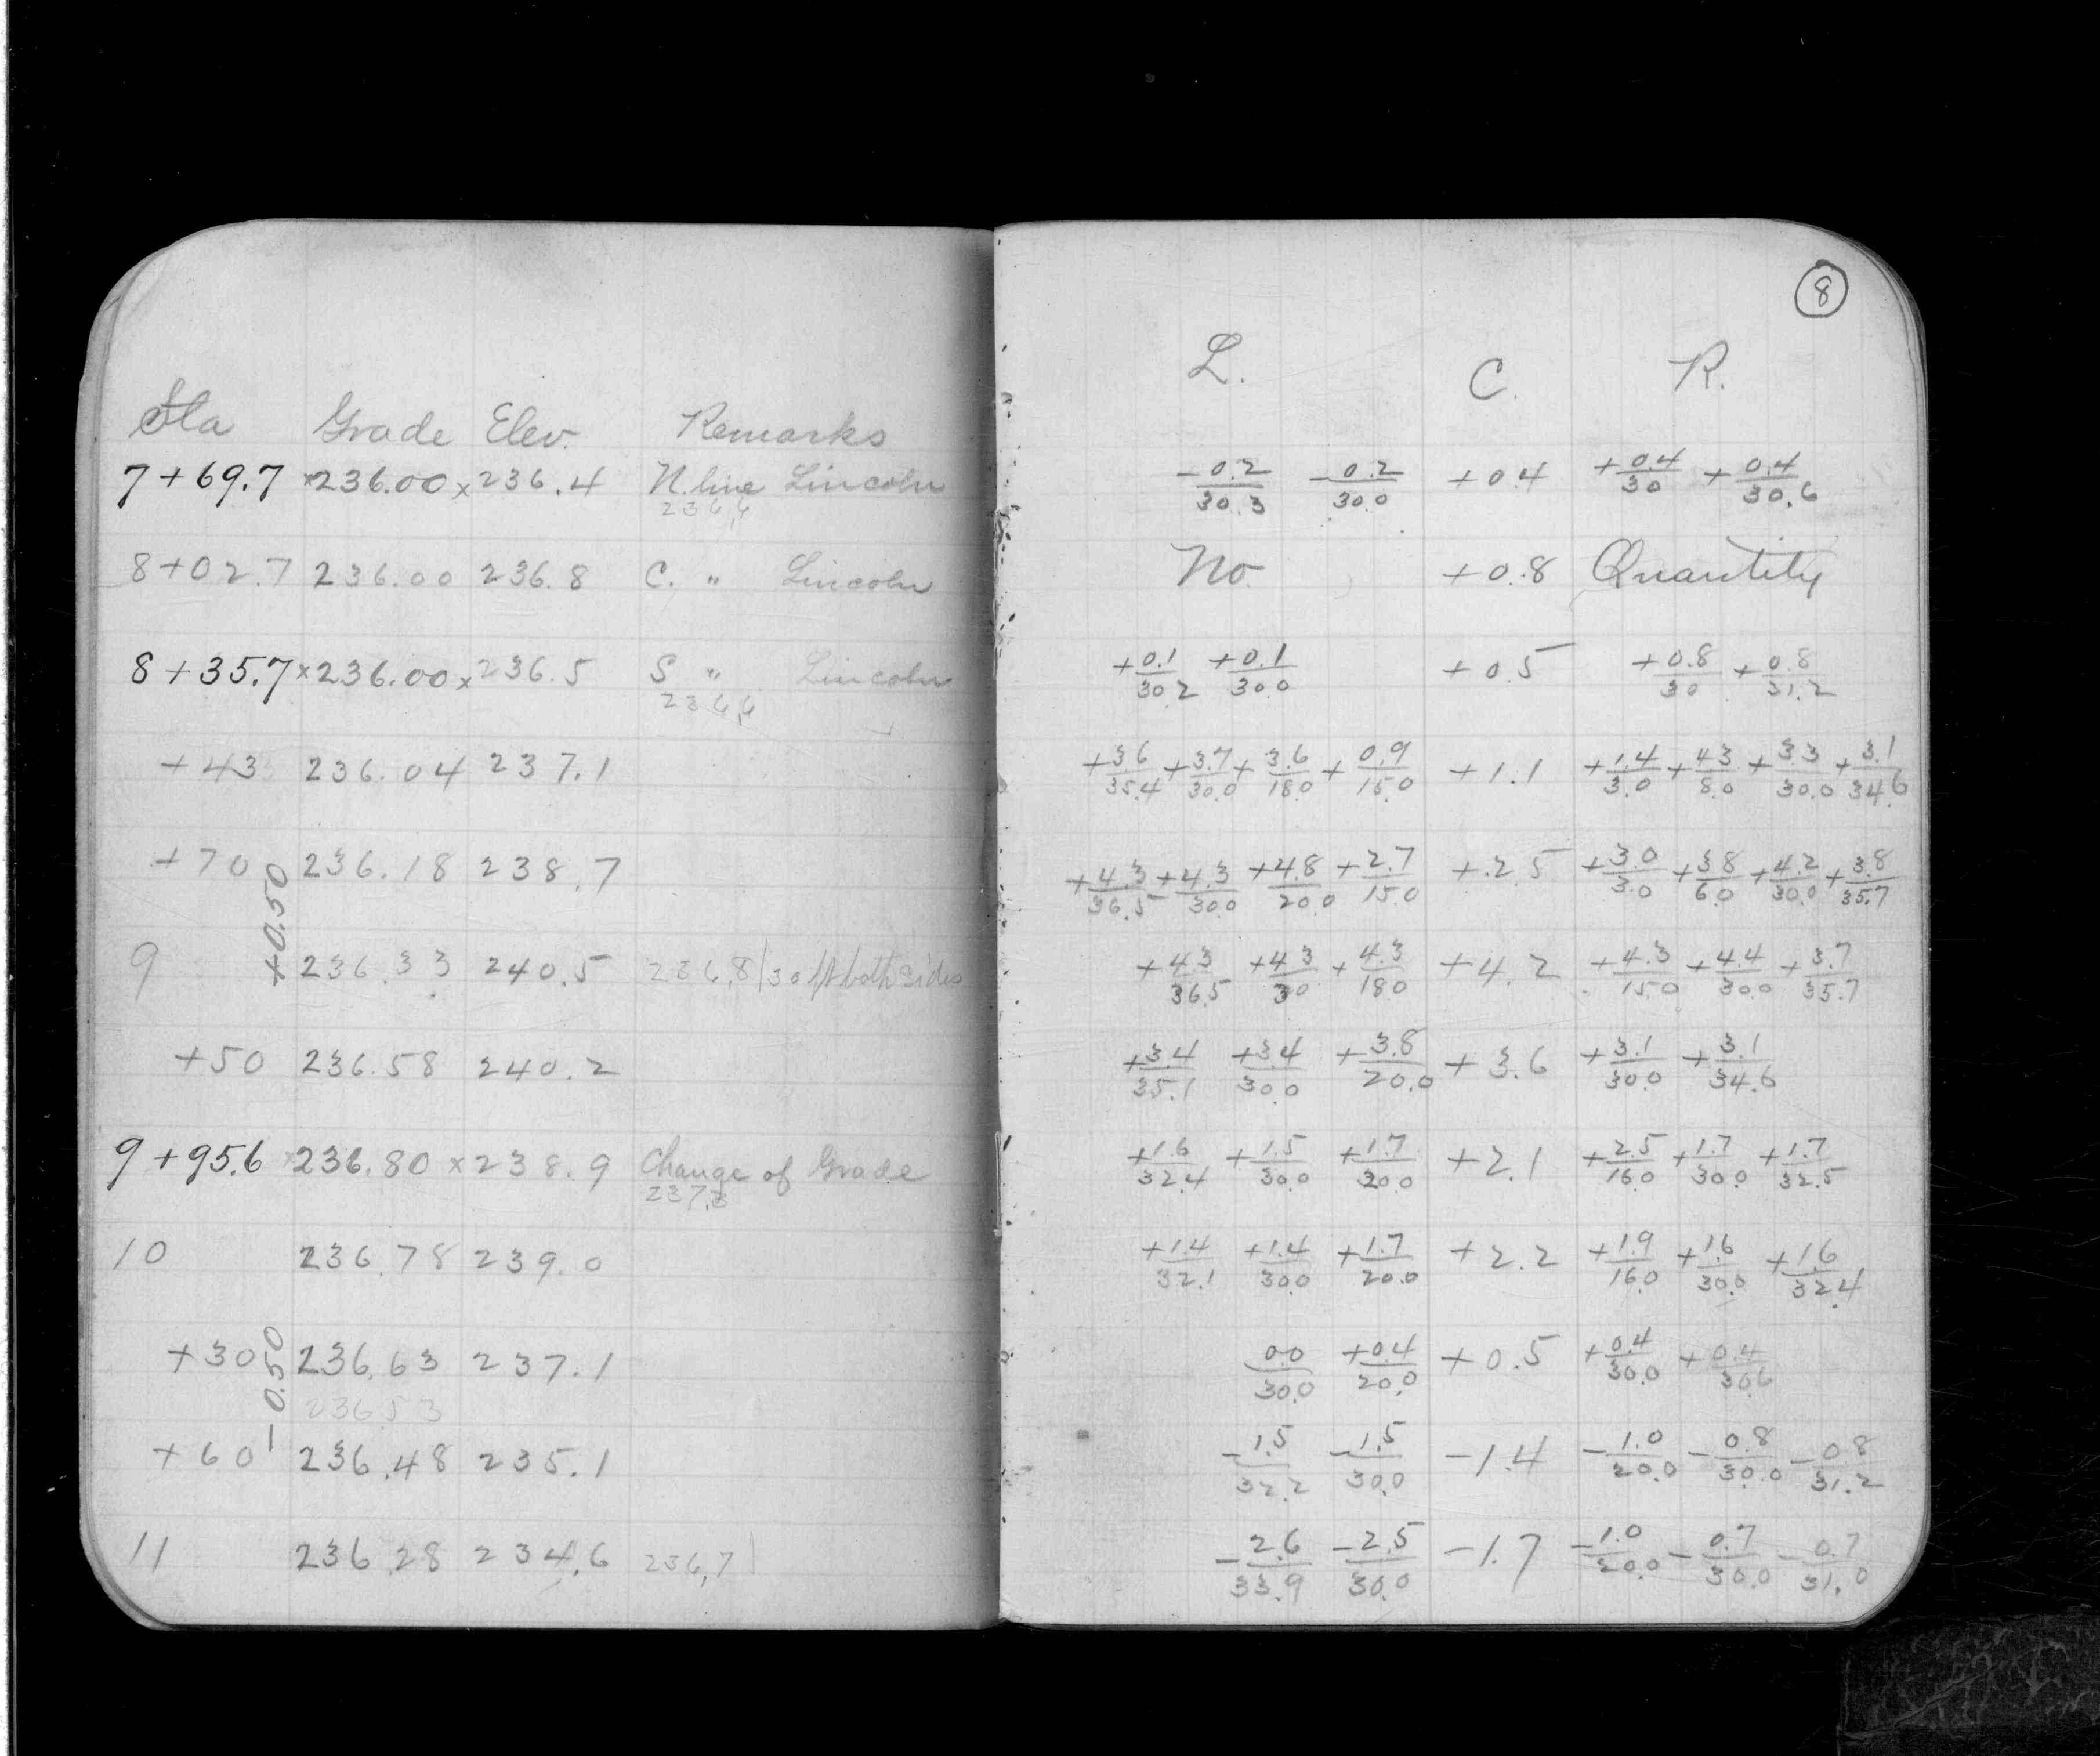 8
Sta Grade Elev. Remarks L. C. R.
7+69.7 ×236.00 ×236.4 N. line Lincoln -0.2/30.3 -0.2/30.0 +0.4 +0.4/30 +0.4/30.6
236,6
8+02.7 236.00 236.8 C. " Lincoln No. +0.8 Quantity
8+35.7 ×236.00 ×236.5 S " Lincoln +0.1/30.2 +0.1/30.0 +0.5 +0.8/30 +0.8/31.2
236,6
+43 236.04 237.1 +3.6/35.4 +3.7/30.0 +3.6/18.0 +0.9/15.0 +1.1 +1.4/3.0 +4.3/8.0 +3.3/30.0 +3.1/34.6
+70 236.18 238.7 +4.3/36.5 +4.3/30.0 +4.8/20.0 +2.7/15.0 +2.5 +3.0/3.0 +3.8/6.0 +4.2/30.0 +3.8/35.7
+0.50
9 236.33 240.5 236,8 | 30 ft both sides +4.3/36.5 +4.3/30 +4.3/18.0 +4.2 +4.3/15.0 +4.4/30.0 +3.7/35.7
+50 236.58 240.2 +3.4/35.1 +3.4/30.0 +3.8/20.0 +3.6 +3.1/30.0 +3.1/34.6
9+95.6 ×236.80 ×238.9 Change of Grade +1.6/32.4 +1.5/30.0 +1.7/20.0 +2.1 +2.5/16.0 +1.7/30.0 +1.7/32.5
237,3
10 236.78 239.0 +1.4/32.1 +1.4/30.0 +1.7/20.0 +2.2 +1.9/16.0 +1.6/30.0 +1.6/32.4
+30 236.63 237.1 0.0/30.0 +0.4/20.0 +0.5 +0.4/30.0 +0.4/30.6
-0.50
236.53
+60 236.48 235.1 -1.5/32.2 -1.5/30.0 -1.4 -1.0/20.0 -0.8/30.0 -0.8/31.2
11 236.28 234.6 236,7 | -2.6/33.9 -2.5/30.0 -1.7 -1.0/20.0 -0.7/30.0 -0.7/31.0